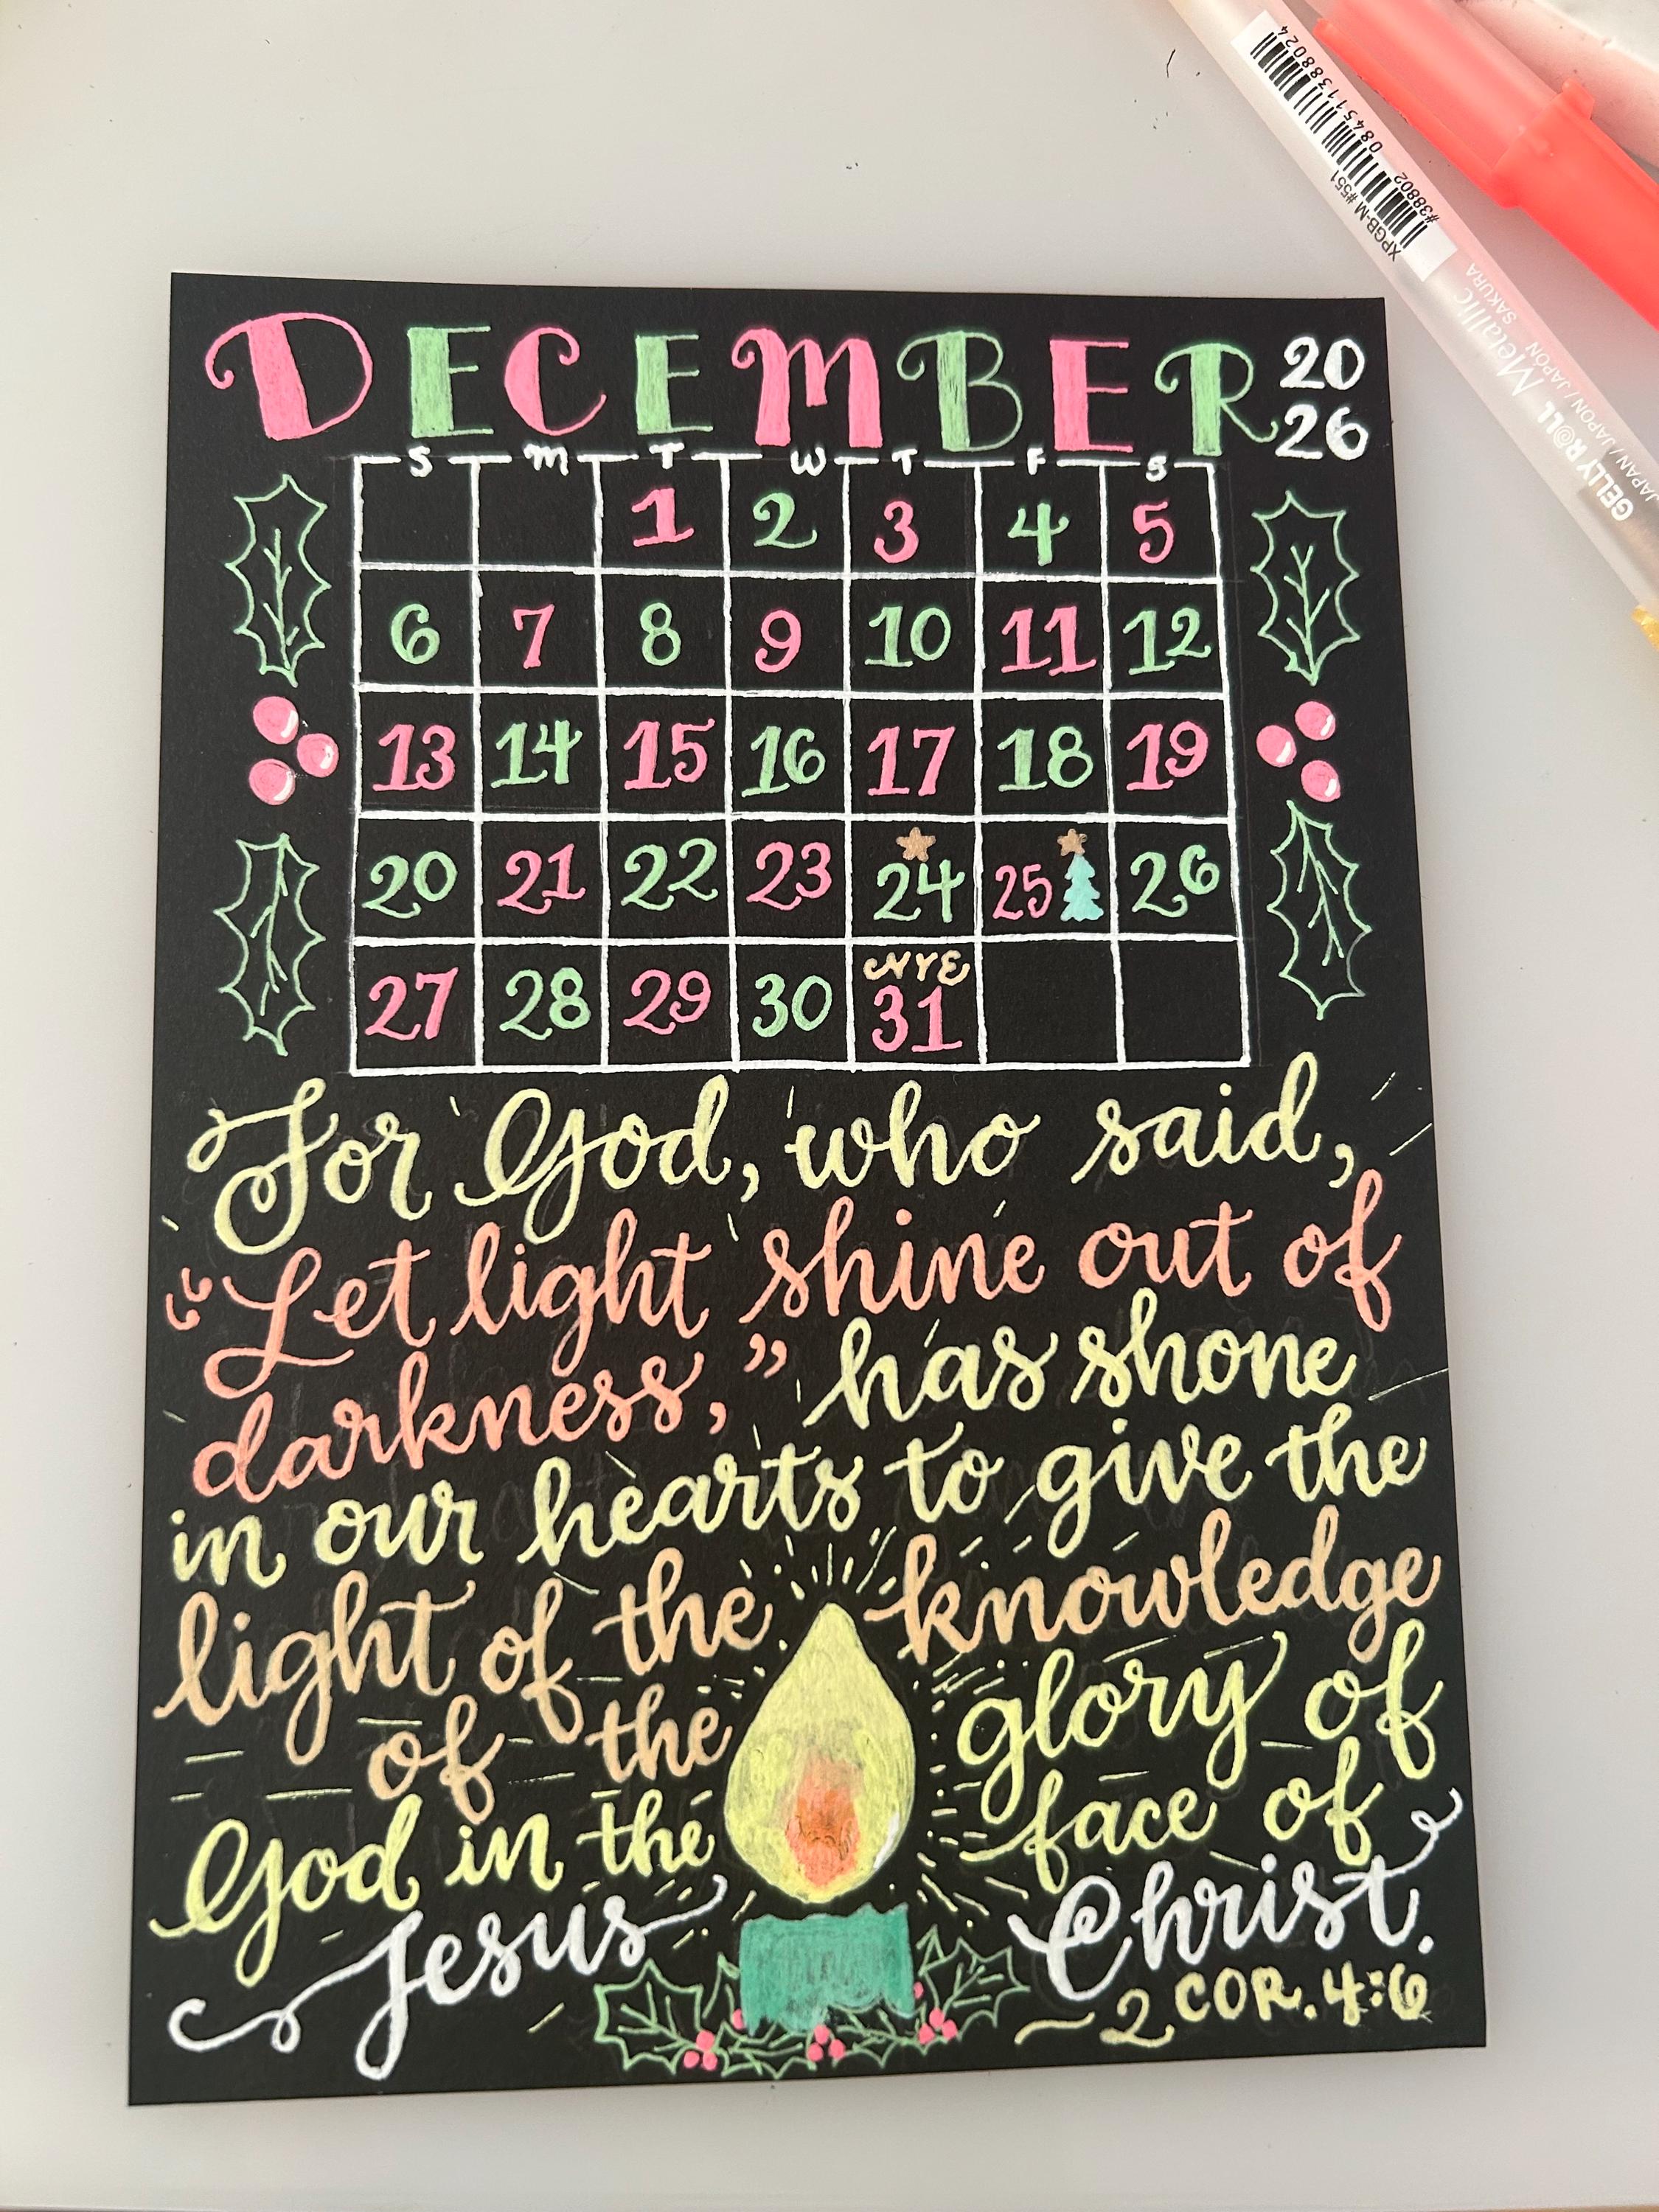 DECEMBER 20
26
S M T W T F S
1 2 3 4 5
6 7 8 9 10 11 12
13 14 15 16 17 18 19
20 21 22 23 24 25 26
NYE
27 28 29 30 31
For God, who said,
"Let light shine out of
darkness," has shone
in our hearts to give the
light of the knowledge
of the glory of
God in the face of
Jesus Christ.
~2 COR. 4:6
084511388024
XPGB-M #551 #38802
GELLY ROLL Metallic
JAPAN / JAPON / JAPAN SAKURA